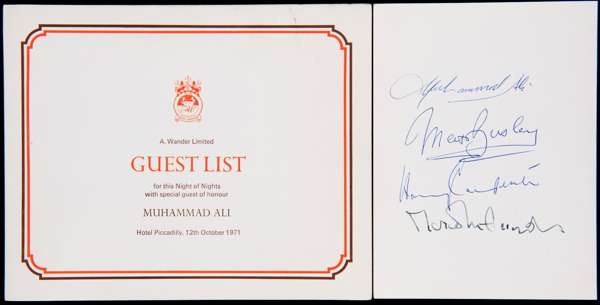 A. Wander Limited
GUEST LIST
for this Night of Nights
with special guest of honour
MUHAMMAD ALI
Hotel Piccadilly, 12th October 1971
Muhammad Ali
Harry Carpenter